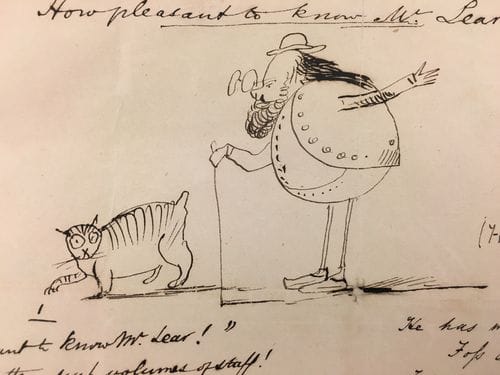 How pleasant to know Mr. Lear
1
to know Mr Lear! "
volumes of stuff!
He has
Foss